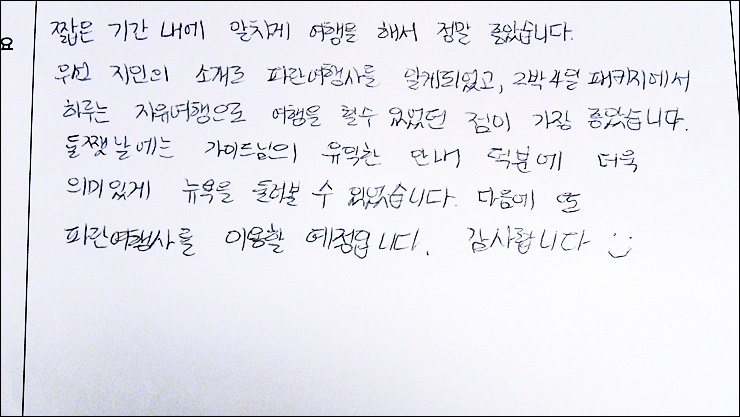 요
짧은 기간 내에 알차게 여행을 해서 정말 좋았습니다.
우선 지인의 소개로 파란여행사를 알게되었고, 2박4일 패키지에서
하루는 자유여행으로 여행을 할수 있었던 점이 가장 좋았습니다.
둘쨋날에는 가이드님의 유익한 안내 덕분에 더욱
의미있게 뉴욕을 둘러볼 수 있었습니다. 다음에 또
파란여행사를 이용할 예정입니다. 감사합니다 :)